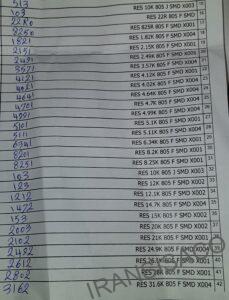 513
103 RES 10K 805 J SMD X003
22R0 RES 22R 805 F SMD
8250 RES 825R 805 F SMD X001
1821 RES 1.82K 805 F SMD X004
2151 RES 2.15K 805 F SMD X001
2491 RES 2.49K 805 F SMD X006
3571 RES 3.57K 805 F SMD X004
4121 RES 4.12K 805 F SMD X001
4021 RES 4.02K 805 F SMD X001
4641 RES 4.64K 805 F SMD X004
4701 RES 4.7K 805 F SMD X004
4991 RES 4.99K 805 F SMD X004
5101 RES 5.1K 805 F SMD X001
5111 RES 5.11K 805 F SMD X004
6341 RES 6.34K 805 F SMD X001
8201 RES 8.2K 805 F SMD X001
8251 RES 8.25K 805 F SMD X001
103 RES 10K 805 J SMD X003
123 RES 12K 805 F SMD X002
1212 RES 12.1K 805 F SMD X002
1472 RES 14.7K 805 F SMD X004
153 RES 15K 805 F SMD X002
2003
2102 RES 21K 805 F SMD X001 38
2492 RES 24.9K 805 F SMD X001 39
2612 RES 26.1K 805 F SMD X001 40
2802 RES 28K 805 F SMD X002 41
3162 RES 31.6K 805 F SMD X004 42